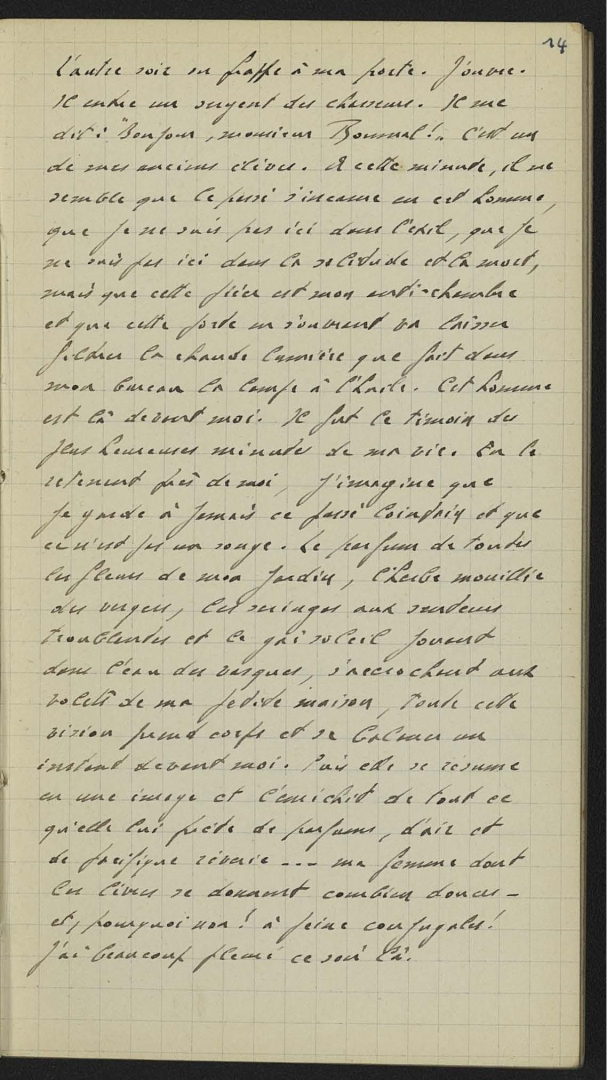 14
L'autre soir on frappe à ma porte. J'ouvre.
Il entre un sergent des chasseurs. Il me
dit : "Bonjour, monsieur Bonnal!". C'est un
de mes anciens élèves. A cette minute, il me
semble que le passé s'incarne en cet homme,
que je ne suis pas ici dans l'exil, que je
ne suis pas ici dans la solitude et la mort,
mais que cette pièce est mon anti-chambre
et que cette porte en s'ouvrant va laisser
filtrer la chaude lumière que fait dans
mon bureau la lampe à l'huile. Cet homme
est là devant moi. Il fut le témoin des
plus heureuses minutes de ma vie. En le
retenant près de moi, j'imagine que
je garde à jamais ce passé lointain et que
ce n'est pas un songe. Le parfum de toutes
les fleurs de mon jardin, l'herbe mouillée
des vergers, les seringas aux senteurs
troublantes et le gai soleil jouant
dans l'eau des vasques, s'accrochant aux
volets de ma petite maison, toute cette
vision prend corps et se balance un
instant devant moi. Puis elle se résume
en une image et l'enrichit de tout ce
qu'elle lui prête de parfums, d'air et
de pacifique rêverie --- ma femme dont
les lèvres se donnent combien douces -
et, pourquoi non! à peine conjugales!
J'ai beaucoup pleuré ce soir là.